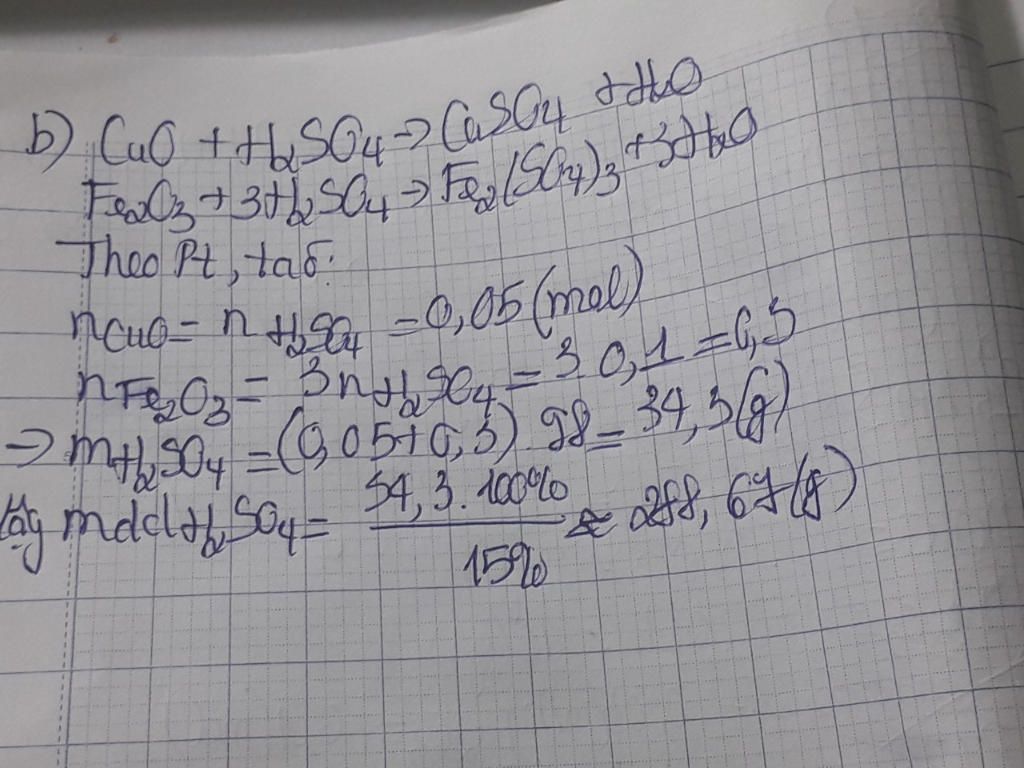 b) CuO + H2SO4 → CuSO4 + H2O
Fe2O3 + 3H2SO4 → Fe2(SO4)3 + 3H2O
Theo Pt, ta có:
nCuO = n H2SO4 = 0,05 (mol)
nFe2O3 = 3nH2SO4 = 3 0,1 = 0,3
→ mH2SO4 = (0,05+0,3) 98 = 34,3(g)
mddH2SO4 = 34,3.100% / 15% ≈ 228,67(g)